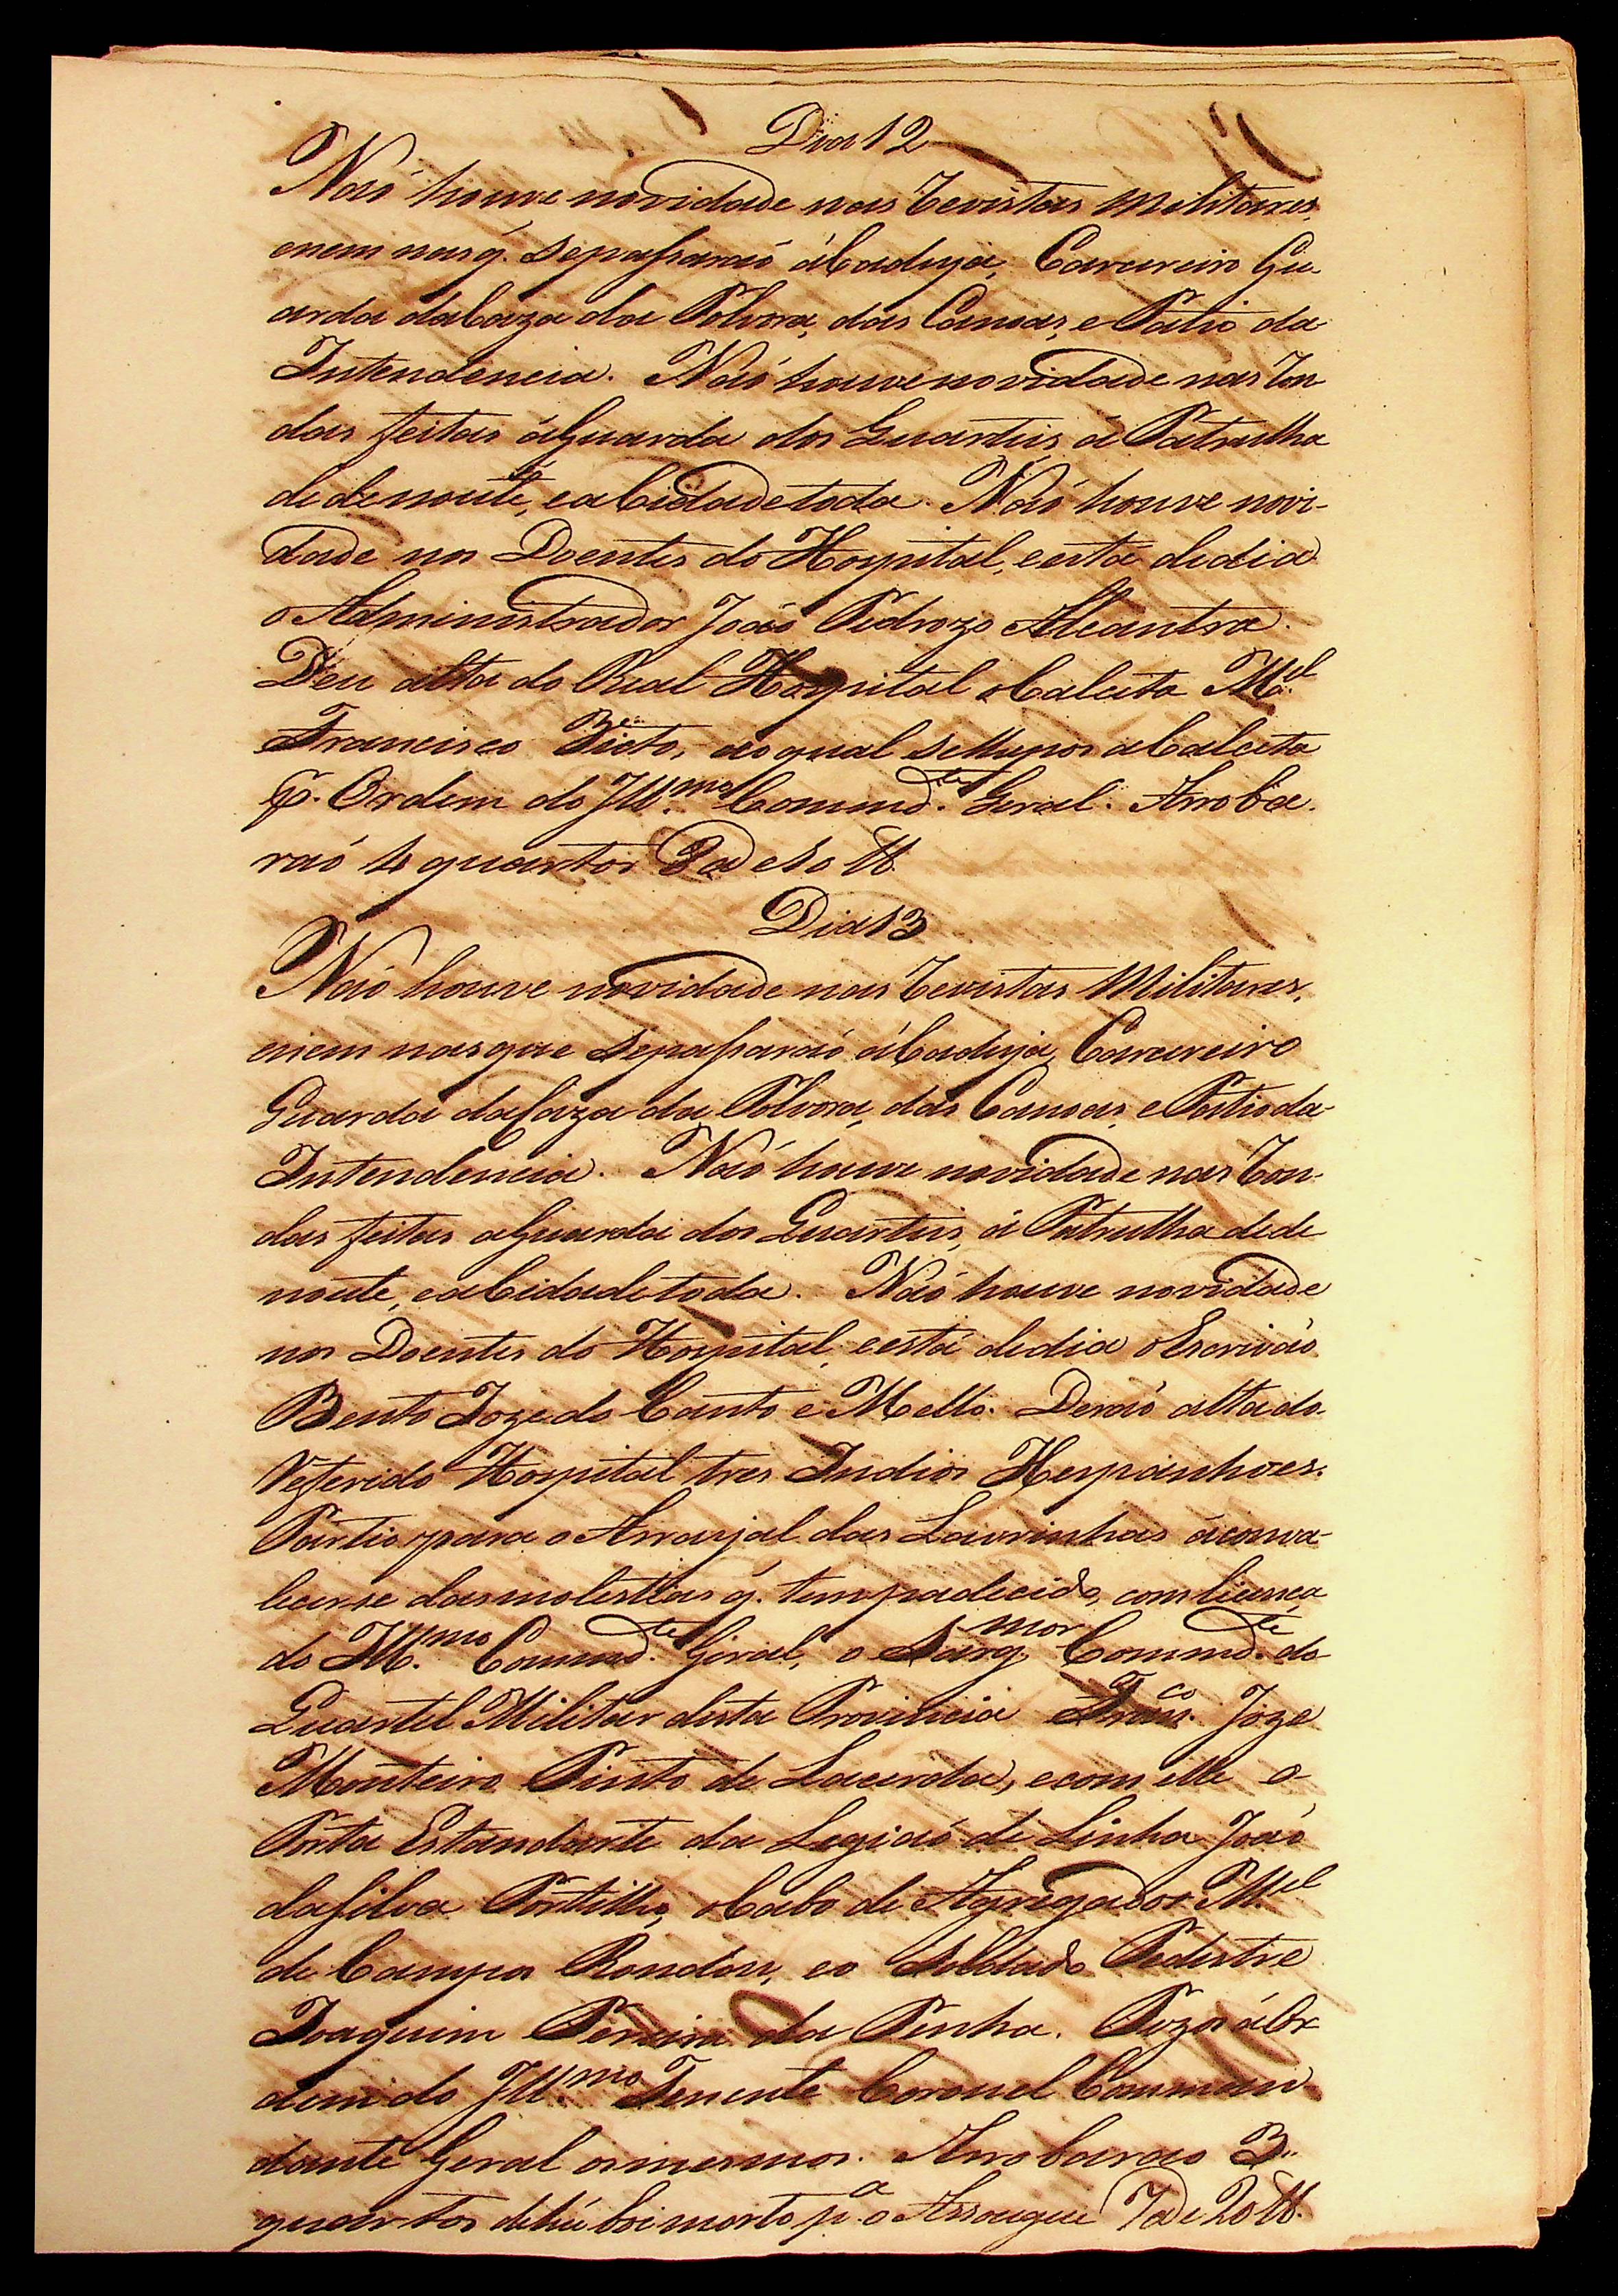 Dia 12
Naõ houve novidade nas Revistas Militares,
enem nas q. sepassaraõ áCadeya, Carcereiro Gu-
arda daCaza da Polvora, das Canoas, e Patio da
Intendencia. Naõ houve novidade nas Ron-
das feitas áGuarda dos Quarteis, á Patrulha
de denoute, eaCidade toda. Naõ houve novi-
dade nos Doentes do Hospital, eestá dedia
o Administrador Joaõ Pedrozo Alcantra.
Deu alta do Real Hospital oCalceta M.el
Francisco Bicto, aoqual selhepos aCalceta
p. Ordem do Ill.mo Commd.te Geral. Arroba-
raõ 4 quartos @ e lb
Dia 13
Naõ houve novidade nas Revistas Militares,
enem nasque sepassaraõ áCadeya, Carcereiro
Guarda daCaza da Polvora, das Canoas, e Patio da
Intendencia. Naõ houve novidade nas Ron-
das feitas aGuarda dos Quarteis, á Patrulha de de
noute, eaCidade toda. Naõ houve novidade
nos Doentes do Hospital, eestá dedia oEscrivaõ
Bento Joze do Canto e Mello. Deraõ alta do
referido Hospital tres Indios Hespanhoes.
Partio para o Arrajal das Lavrinhas áconva-
lecerse dasmolestias q. tempadecido, comlicença
do Ill.mo Commd.te Geral, o Sarg.mor Commd.te do
Quartel Militar desta Provincia Fran.co Joze
Monteiro Pinto de Lacerda, ecom elle o
Porta Estandarte da Legiaõ de Linha Joaõ
daSilva Portilho, oCabo de Agregados M.el
de Campos Rondon, eo Soldado Pedestre
Joaquim Pereira da Penha. Poza áOr-
dem do Ill.mo Tenente Coronel Comman-
dante Geral osmesmos. Arrobaraõ 3
quartos dehũ boi morto p.a o Assougue 7@ e 20 lb.